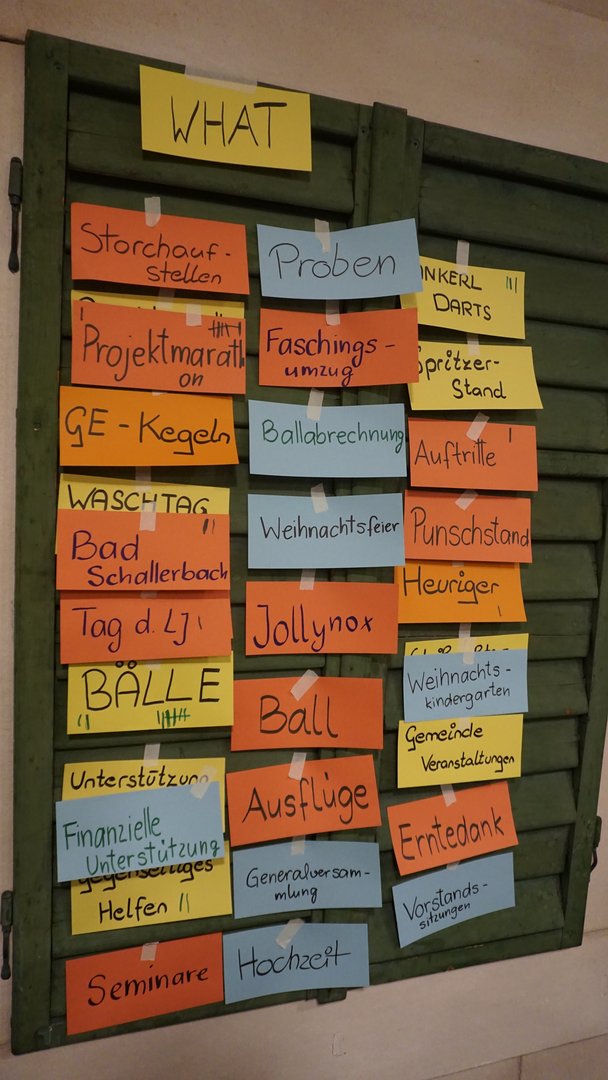 WHAT
Storchauf-
stellen
Projektmarath
on
GE-Kegeln
WASCHTAG
Bad
Schallerbach
Tag d. LJ
BÄLLE
Unterstützung
Finanzielle
Unterstützung
gegenseitiges
Helfen
Seminare
Proben
Faschings-
umzug
Ballabrechnung
Weihnachtsfeier
Jollynox
Ball
Ausflüge
Generalversam-
mlung
Hochzeit
NKERL
DARTS
Spritzer-
Stand
Auftritte
Punschstand
Heuriger
Weihnachts-
kindergarten
Gemeinde
Veranstaltungen
Erntedank
Vorstands-
sitzungen